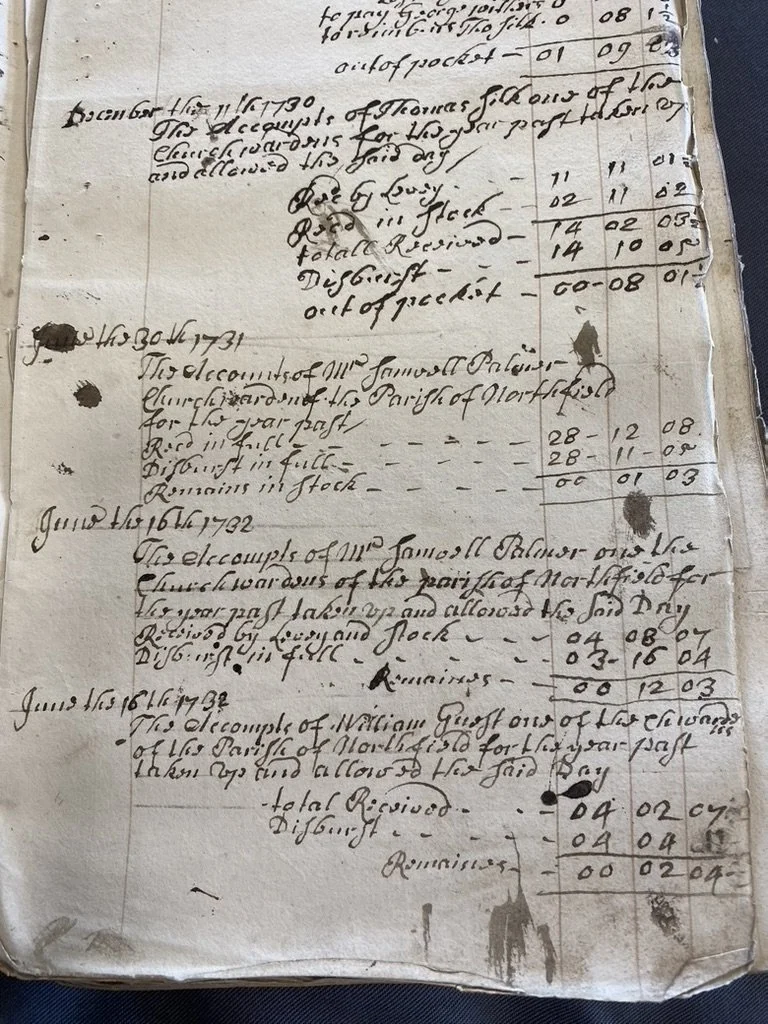 to pay George
to reimburs Tho Silk. 0 08 1½
out of pocket - 01 09
December the 11th 1730
The Accompts of Thomas Silk one of the
Churchwardens for the year past taken vp
and allowed the said day
Rec by Levey - - 11 11 01½
Recd in Stock 02 11 02
totall Received - 14 02 03½
Disburst - - - 14 10 05
out of pocket - 00-08 01½
June the 30th 1731
The Accounts of Mr Samvell Palmer
Churchwarden of the Parish of Northfield
for the year past
Recd in full - - - - - - 28-12 08
Disburst in full - - - - - - 28-11-05
Remains in Stock - - - - - 00 01 03
June the 16th 1732
The Accompts of Mr Samvell Palmer one the
Churchwardens of the parish of Northfield for
the year past taken vp and allowed the said Day
Received by Levey and Stock - - - 04 08 07
Disburst in full - - - - - 03-16 04
Remaines - - 00 12 03
June the 16th 1732
The Accompts of William Guest one of the Chwardens
of the Parish of Northfield for the year past
taken vp and allowed the said Day
total Received - - - 04 02 07
Disburst - - - - 04 04
Remaines - - 00 02 04